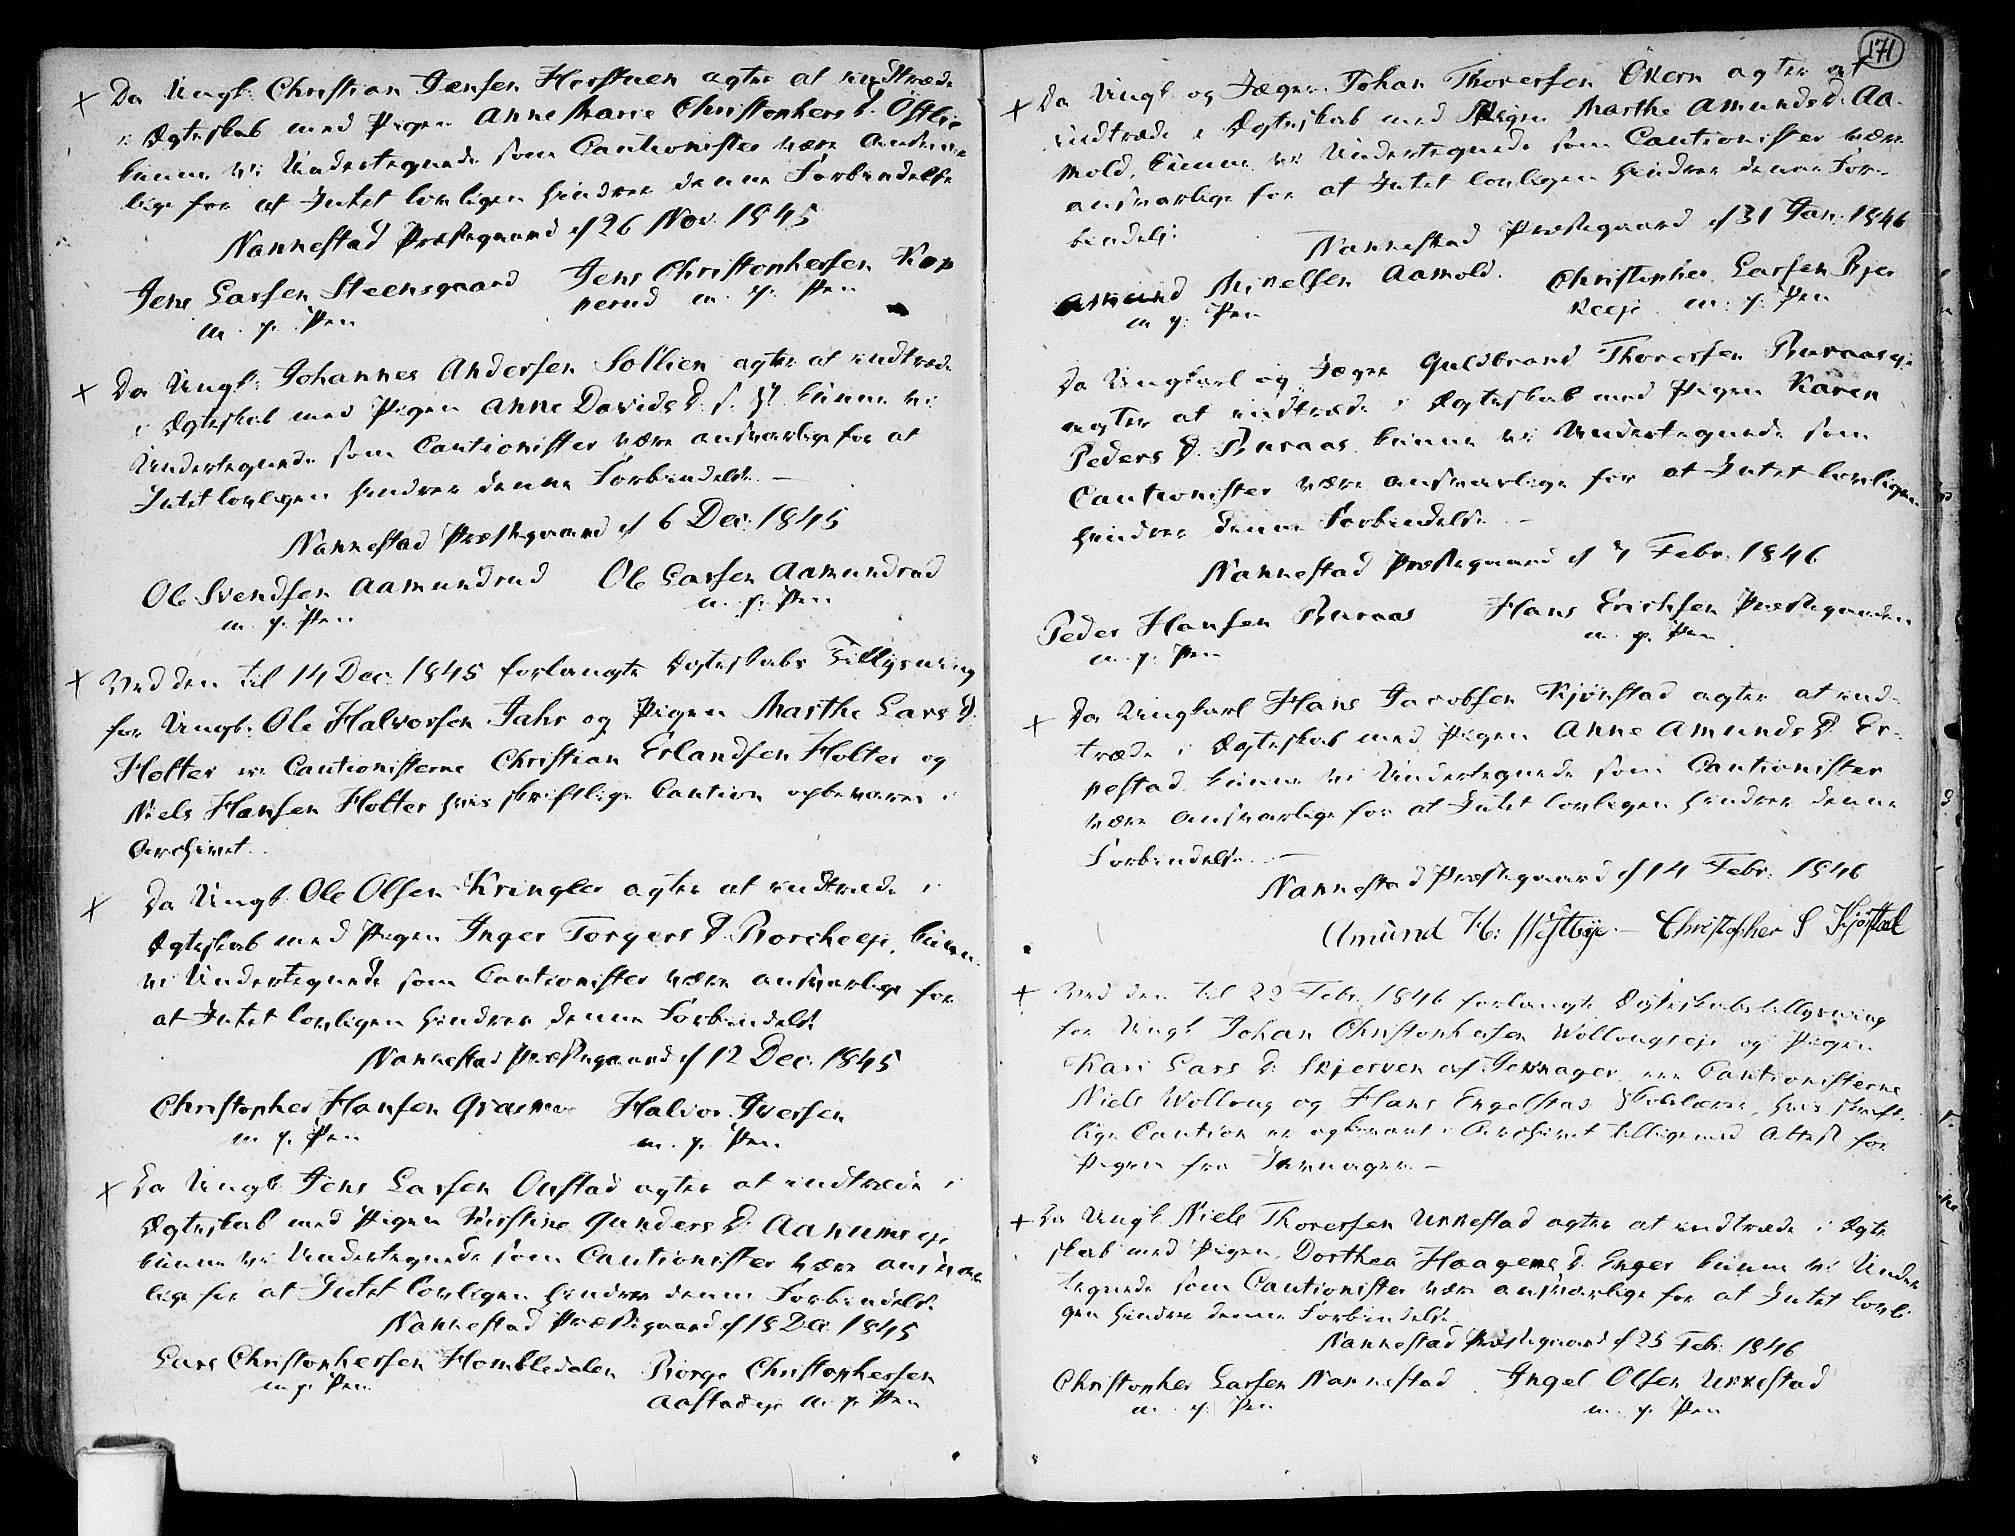 Da Ungk. Christian Jensen Horstuen agter at indtræde
i Ægteskab med Pigen Anne Marie Christophers D. Østlie
kunne vi Undertegnede som Cautionister være ansvar-
lige for at Intet lovligen hindrer denne Forbindelse
Nannestad Præstegaard d 26 Nov. 1845
Jens Larsen Steensgaard Jens Christophersen Kop
m. p. Pen perud m. p. Pen
Da Ungk. Johannes Andersen Sollien agter at indtræde
i Ægteskab med Pigen Anne Davids D. kunne vi
Undertegnede som Cautionister være ansvarlige for at
Intet lovligen hindrer denne Forbindelse. —
Nannestad Præstegaard d 6 Dec. 1845
Ole Svendsen Aamundrud Ole Larsen Aamundrud
m. p. Pen m. p. Pen
Ved den til 14 Dec. 1845 forlangte Ægteskabs Tillysning
for Ungk. Ole Halvorsen Jahr og Pigen Marthe Lars D.
Holter ere Cautionisterne Christian Erlandsen Holter og
Niels Hansen Holter hvis skriftlige Caution opbevares i
Archivet.
Da Ungk. Ole Olsen Kringler agter at indtræde i
Ægteskab med Pigen Inger Torgers D. Borcheeje, kunne
vi Undertegnede som Cautionister være ansvarlige for
at Intet lovligen hindrer denne Forbindelse
Nannestad Præstegaard d 12 Dec. 1845
Christopher Hansen Halvor Iversen
m. p. Pen m. p. Pen
Da Ungk. Jens Larsen Onstad agter at indtræde i
Ægteskab med Pigen Kirstine Gunders D. Aanums eje
kunne vi Undertegnede som Cautionister være ansvar
lige for at Intet lovligen hindrer denne Forbindelse
Nannestad Præstegaard d 18 Dec. 1845
Lars Christophersen Hombledalen Borge Christophersen
m. p. Pen Aastad eje m. p. Pen
171
Da Ungk. og Jæger Johan Thoresen Økern agter at
indtræde i Ægteskab med Pigen Marthe Amunds D. Aa-
mold, kunne vi Undertegnede som Cautionister være
ansvarlige for at Intet lovligen hindrer denne For-
bindelse
Nannestad Præstegaard d 31 Jan. 1846
Amund Mikelsen Aamold. Christopher Larsen Bjer
m. p. Pen keeje m. p. Pen
Da Ungkarl og Jæger Guldbrand Thoresen Buraaseje
agter at indtræde i Ægteskab med Pigen Karen
Peders D. Buraas kunne vi Undertegnede som
Cautionister være ansvarlige for at Intet lovligen
hindrer denne Forbindelse —
Nannestad Præstegaard d 7 Febr. 1846
Peder Hansen Buraas Hans Erichsen Præstegaarden
m. p. Pen m. p. Pen
Da Ungkarl Hans Jacobsen Kjønstad agter at ind-
træde i Ægteskab med Pigen Anne Amunds D. Er-
nestad kunne vi Undertegnede som Cautionister
være ansvarlige for at Intet lovligen hindrer denne
Forbindelse. —
Nannestad Præstegaard d 14 Febr. 1846
Amund H: Westbye. — Christopher S Kjøstad
Ved den til 22 Febr. 1846 forlangte Ægteskabstillysning
for Ungk. Johan Christophersen Wollongseje og Pigen
Kari Lars D. Skjerven af Jevnager ere Cautionisterne
Niels Wollong og Hans Engelstad Skolelærer, hvis skrift-
lige Caution er opbevaret i Archivet tilligemed Attest for
Pigen fra Jevnager. —
Da Ungk. Niels Thoresen Unnestad agter at indtræde i Ægte
skab med Pigen Dorthea Haagens D. Enger kunne vi Under
tegnede som Cautionister være ansvarlige for at Intet lovli
gen hindrer denne Forbindelse
Nannestad Præstegaard d 25 Feb. 1846
Christopher Larsen Nannestad Ingel Olsen Unnestad
m. p. Pen m. p. Pen